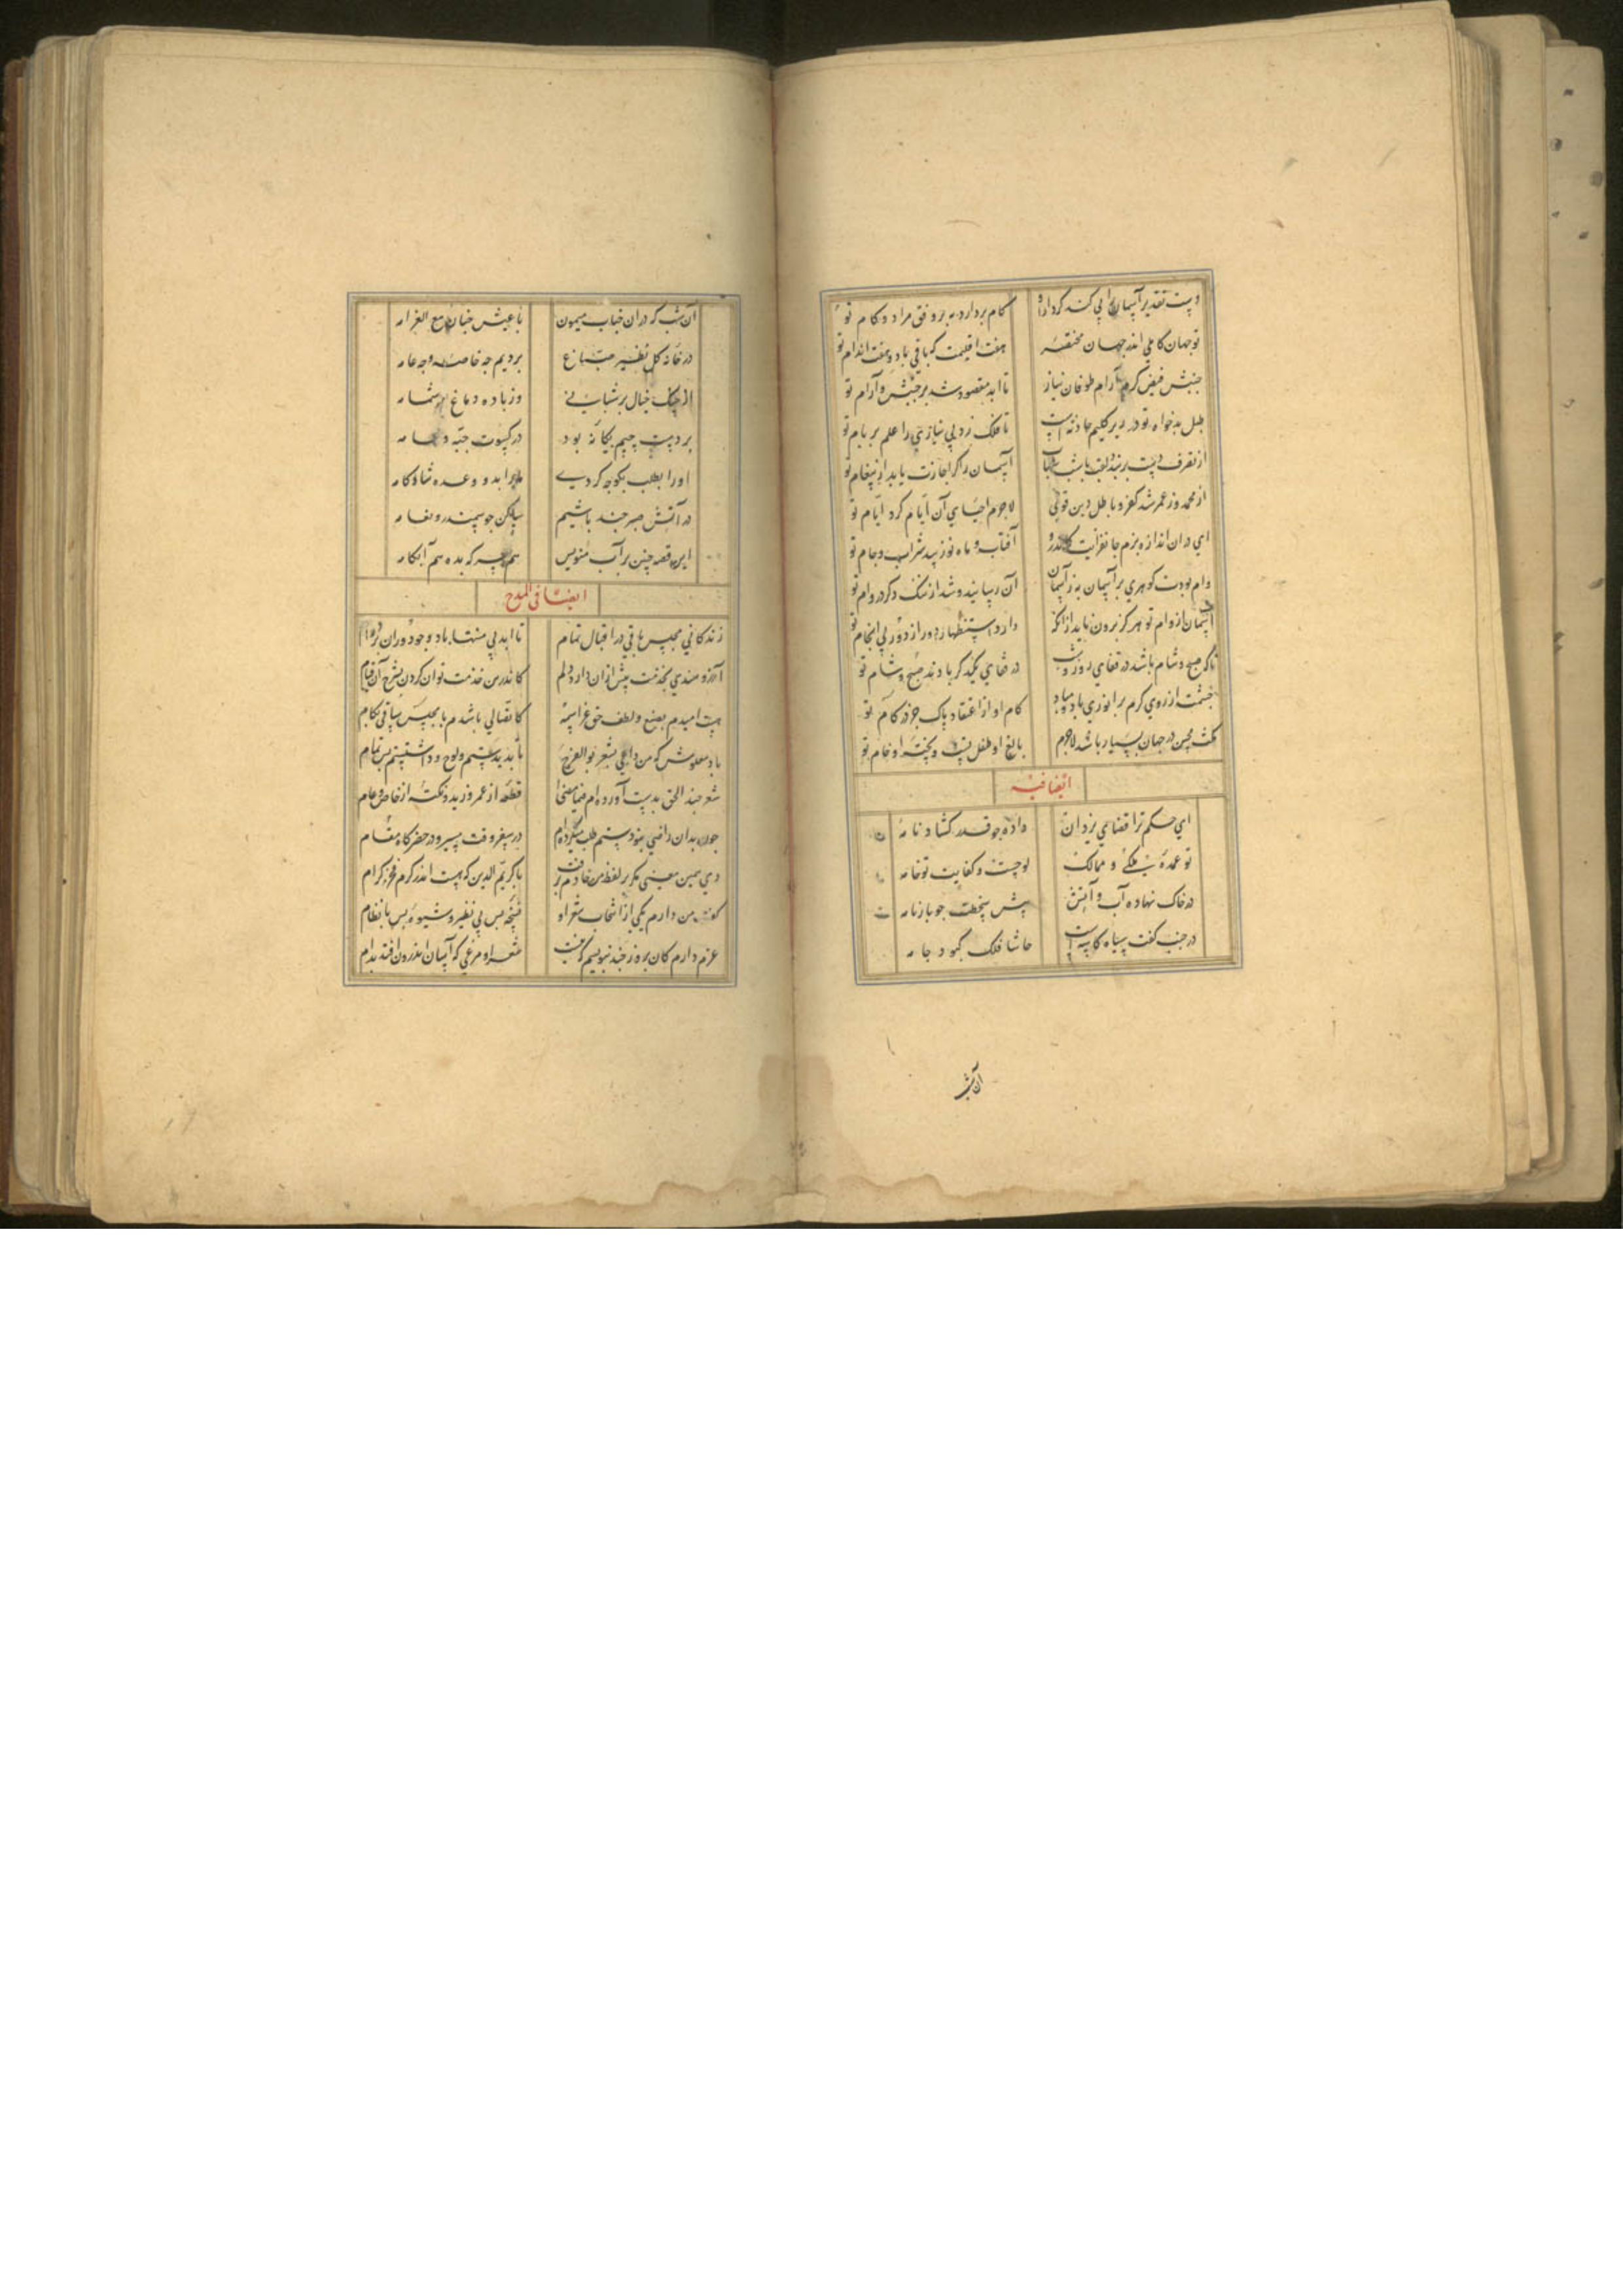 دست تقدیر آسمان را پی کند گر دار او کام بردارد نه بر وفق مراد و کام تو
تو جهان کاملی اندر جهان مختصر هفت اقلیمت که باقی باد و هفت اندام تو
جنبش فیض کرم آرام طوفان نیاز تا ابد مقصود شد بر جنبش و آرام تو
طبل بدخواه تو در زیر گلیم حادثه است تا فلک زد بی نیازی را علم بر بام تو
از تصرف دست بربندد آسمان را گر اجازت یابد از پیغام تو
از محمد وز عمر شد کفر و باطل دین قوی لاجرم احیای آن ایام کرد ایام تو
ای در آن اندازه بزم جانفزایت کاندرو آفتاب و ماه نو زیبد شراب و جام تو
وام بودت گوهری بر آسمان نه ز آسمان آن رسانید و شد از ننگ دگر در وام تو
آسمان از وام تو هرگز برون ناید از آنک دارد استظهار دور از دور بی انجام تو
تا که صبح و شام باشد در قفای روز و شب در قفای یکدگر بادند صبح و شام تو
چشمت از روی کرم بر انوری باد و مباد کام او از اعتقاد پاک جز در کام تو
گشت محسن در جهان بسیار باشد لاجرم بالغ او طفل تست و پخته او خام تو
ایضا فیه
ای حکم ترا قضای یزدان داده چو قدر گشاد نامه
تو عمده ملکی و ممالک لوحست و کفایت تو خامه
در خاک نهاده آب و آتش پیش سخطت چو بارنامه
در جنب کفت سیاه کاسه است حاشا فلک کبود جامه
آن شب
آن شب که در آن جناب میمون با عیش چنان مع الغرامه
در خانه کل نظیر صباغ بردیم چه خاصه و چه عامه
از چنگ خیال بر شبابی وز باده دماغ بر شمامه
بر دست چپم یگانه بود در کسوت جبه و عمامه
او را بطلب بگو چه کردی ما را بدو وعده شادکامه
در آتش صبر چند باشیم ساکن چو سمندر و نعامه
این قصه چنین بر آب منویس هم جبه که بده هم آبکامه
ایضا فی المدح
زندگانی مجلس باقی در اقبال تمام تا ابد بی منتها باد و چو دوران بر دوام
آرزومندی بخدمت بیش از آن دارد دلم کاندرین خدمت توان کردن بشرح آن قیام
هست امیدم بصنع و لطف حق عز اسمه کاتصالی باشدم با مجلس سامی بکام
باد معلومش که من داعی بشعر بوالفرج تا بدیدستم ولوع داشتستم بس تمام
شعر چند الحق بدست آورده ام فیما مضی قطعه از عمرو زید و نکته از خاص و عام
چون بدان راضی نبودستم طلب میکرده ام در سفر وقت مسیر و در حضر گاه مقام
دی همین معنی مگر بر لفظ من خادم برفت با کریم الدین که هست اندر کرم فخر کرام
گفت من دارم یکی از انتخاب شعر او نسخه بس بی نظیر و شیوه بس با نظام
عزم دارم کان بروز چند بنویسم که نیست شعر او مرغی که آسان اندرون افتد بدام